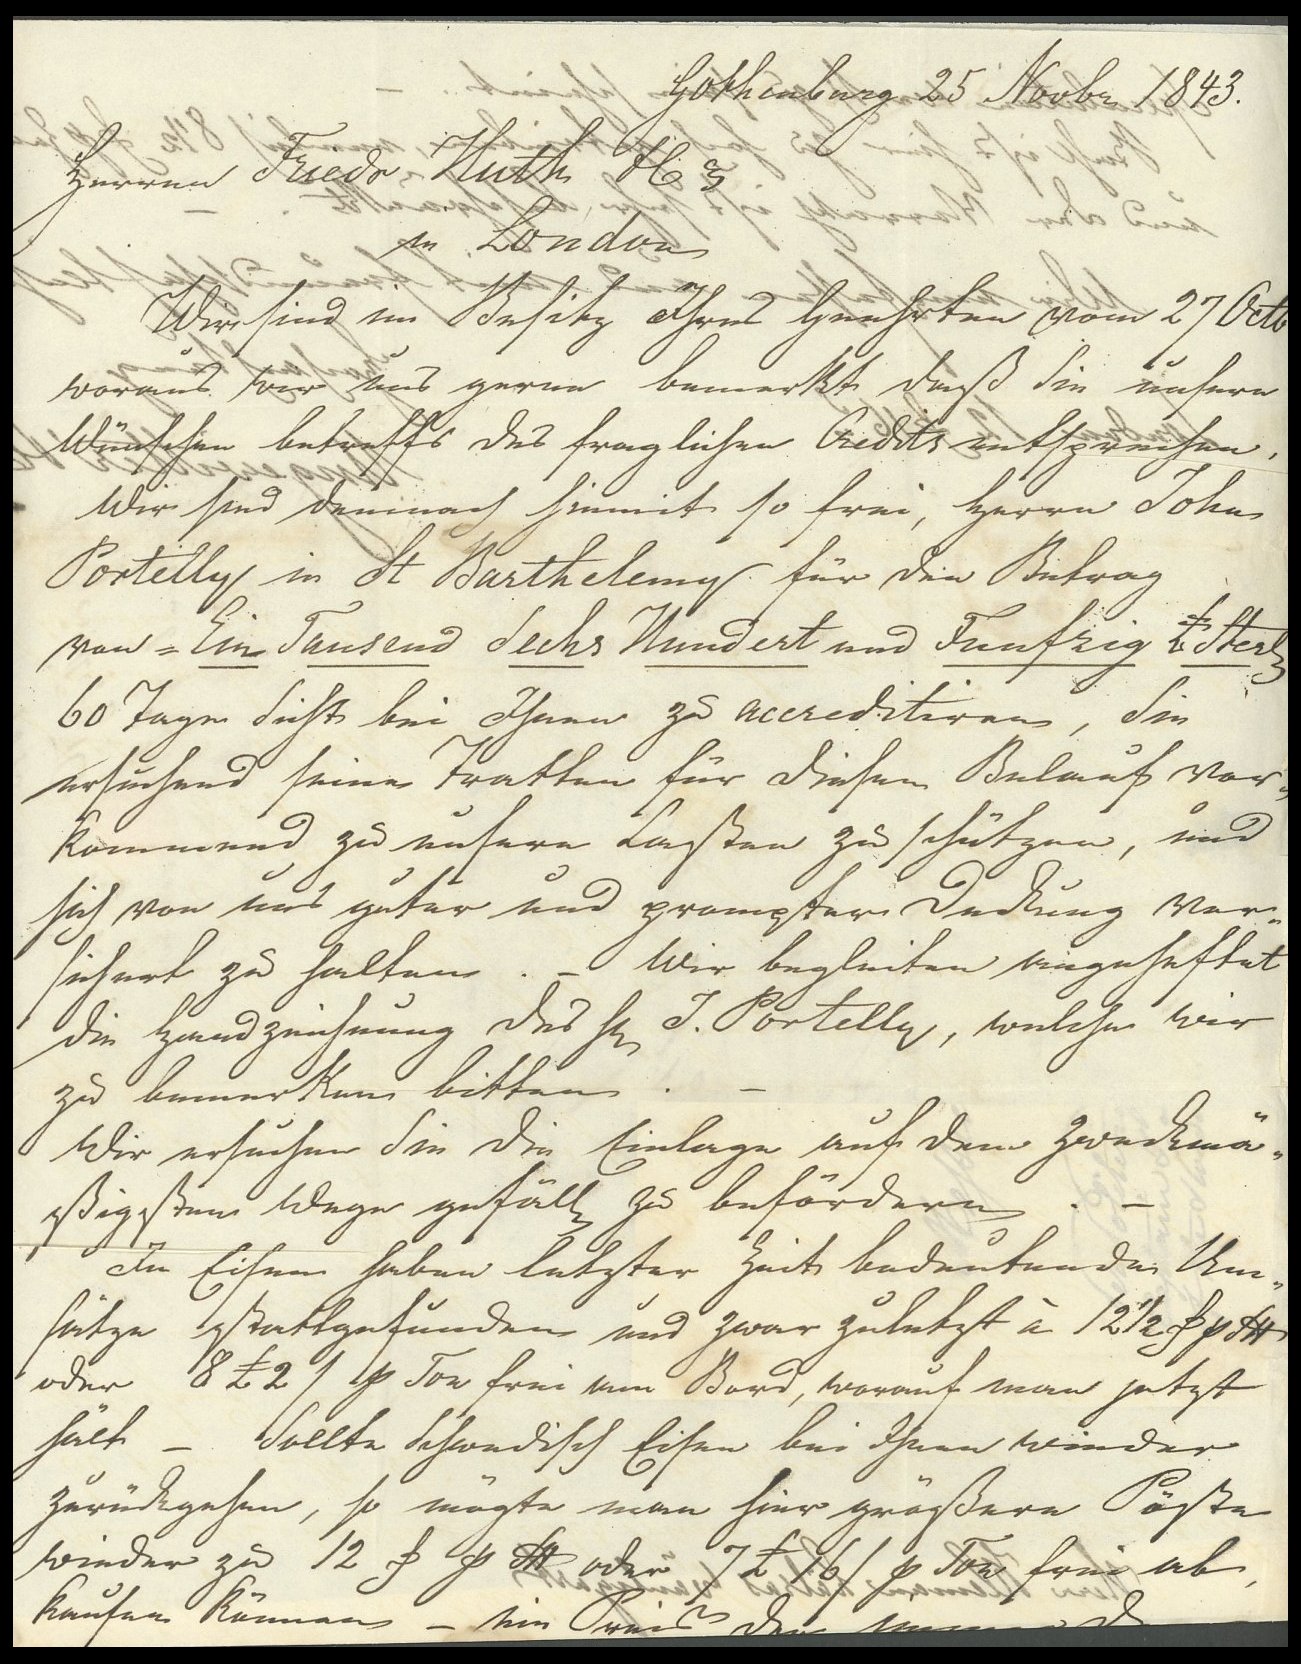 Gothenburg 25 Novbr 1843.
Herren Friedr Huth & Co
in London
Wir sind im Besitz Ihres Geehrten vom 27 Octb
woraus wir uns gerne bemerkt daß Sie unsern
Wünschen betreffs des fraglichen Credits entsprechen.
Wir sind demnach hiemit so frei, Herrn John
Portelly in St Barthelemy für den Betrag
von = Ein Tausend Sechs Hundert und Funfzig £ Sterl
60 Tage Sicht bei Ihnen zu accreditiren, Sie
ersuchend seine Tratten für diesen Belauf vor-
kommend zu unsern Lasten zu schützen, und
sich von uns guter und prompter Deckung ver-
sichert zu halten. – Wir begleiten angeheftet
die Handzeichnung des H J. Portelly, welche wir
zu bemerken bitten. –
Wir ersuchen Sie die Einlage auf dem zweckmä-
ßigsten Wege gefäll zu befördern. –
In Eisen haben letzter Zeit bedeutende Um-
sätze stattgefunden und zwar zuletzt à 12½ p
oder 8 £ 2/ p Ton frei am Bord, worauf man jetzt
hält – Sollte Schwedisch Eisen bei Ihnen wieder
zurückgehen, so mögte man hier größere Pöste
wieder zu 12 p oder 7 £ 16/ p Ton frei ab,
kaufen können – ein Preis der